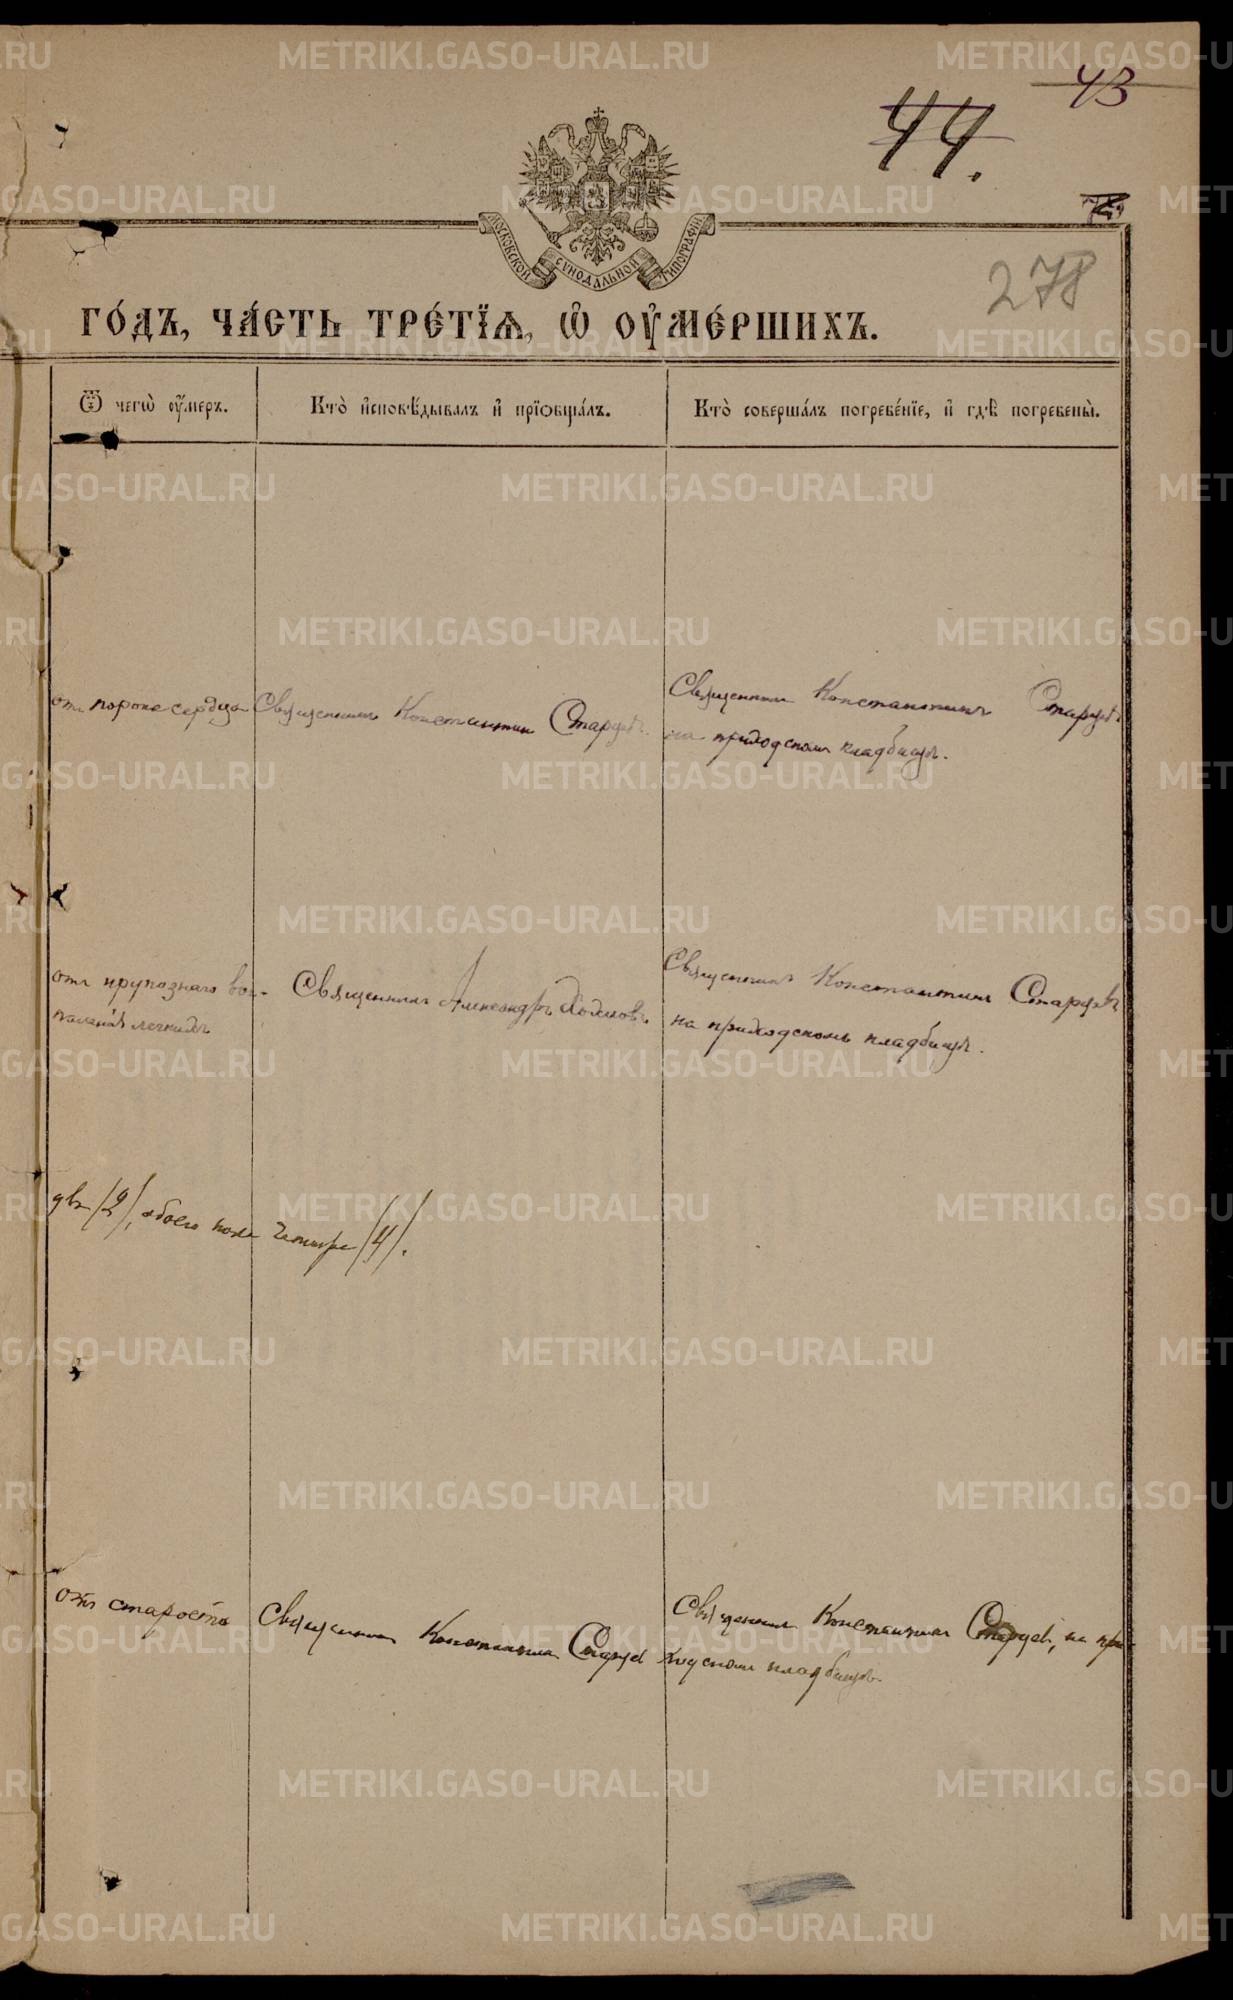 43
44.
278
МОСКОВСКОЙ СѴНОДАЛЬНОЙ ТИПОГРАФІИ
ГО́ДЪ, ЧА́СТЬ ТРЕ́ТЇѦ, Ѡ҆ ОУ҆МЕ́РШИХЪ.
Ѿ чегѡ̀ оу҆́меръ.
Кто̀ и҆сповѣ́дывалъ и҆ прїѡбща́лъ.
Кто̀ соверша́лъ погребе́нїе, и҆ гдѣ̀ погребены̀.
отъ порока сердца
Священникъ Константинъ Старцевъ
Священникъ Константинъ Старцевъ
на приходскомъ кладбищѣ.
отъ крупознаго вос-
паленія легкихъ
Священникъ Александръ
Священникъ Константинъ Старцевъ
на приходскомъ кладбищѣ.
два /2/, обоего пола четыре /4/.
отъ старости
Священникъ Константинъ Старцев
Священникъ Константинъ Старцев, на при-
ходскомъ кладбищѣ.
METRIKI.GASO-URAL.RU